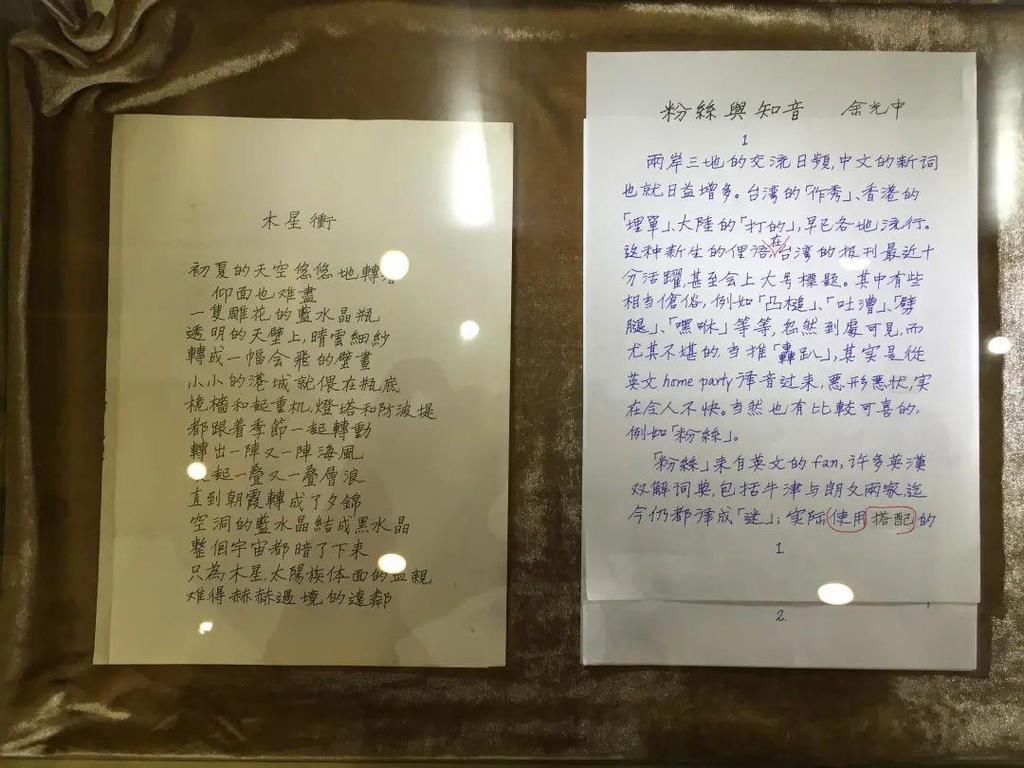 木星衝
初夏的天空悠悠地轉
仰面也难盡
一隻雕花的藍水晶瓶
透明的天壁上,晴雲細紗
轉成一幅会飛的壁畫
小小的港城就偎在瓶底
桅檣和起重机,燈塔和防波堤
都跟着季節一起轉動
轉出一陣又一陣海風
起一疊又一疊層浪
直到朝霞轉成了夕錦
空洞的藍水晶結成黑水晶
整個宇宙都暗了下來
只為木星,太陽族体面的血親
难得赫赫過境的遠鄰
粉絲與知音 余光中
1
兩岸三地的交流日頻,中文的新词
也就日益增多。台湾的「作秀」、香港的
「埋單」、大陸的「打的」,早已各地流行。
这种新生的俚语在台湾的报刊最近十
分活躍,甚至会上大号標题。其中有些
相当傖俗,例如「凸槌」、「吐漕」、「劈
腿」、「嘿咻」等等,忽然到處可見,而
尤其不堪的,当推「轟趴」,其实是從
英文home party译音过来,恶形恶状,实
在令人不快。当然也有比較可喜的,
例如「粉絲」。
「粉絲」来自英文的fan,许多英漢
双解词典,包括牛津与朗文兩家,迄
今仍都译成「迷」;实际使用搭配的
1
2.